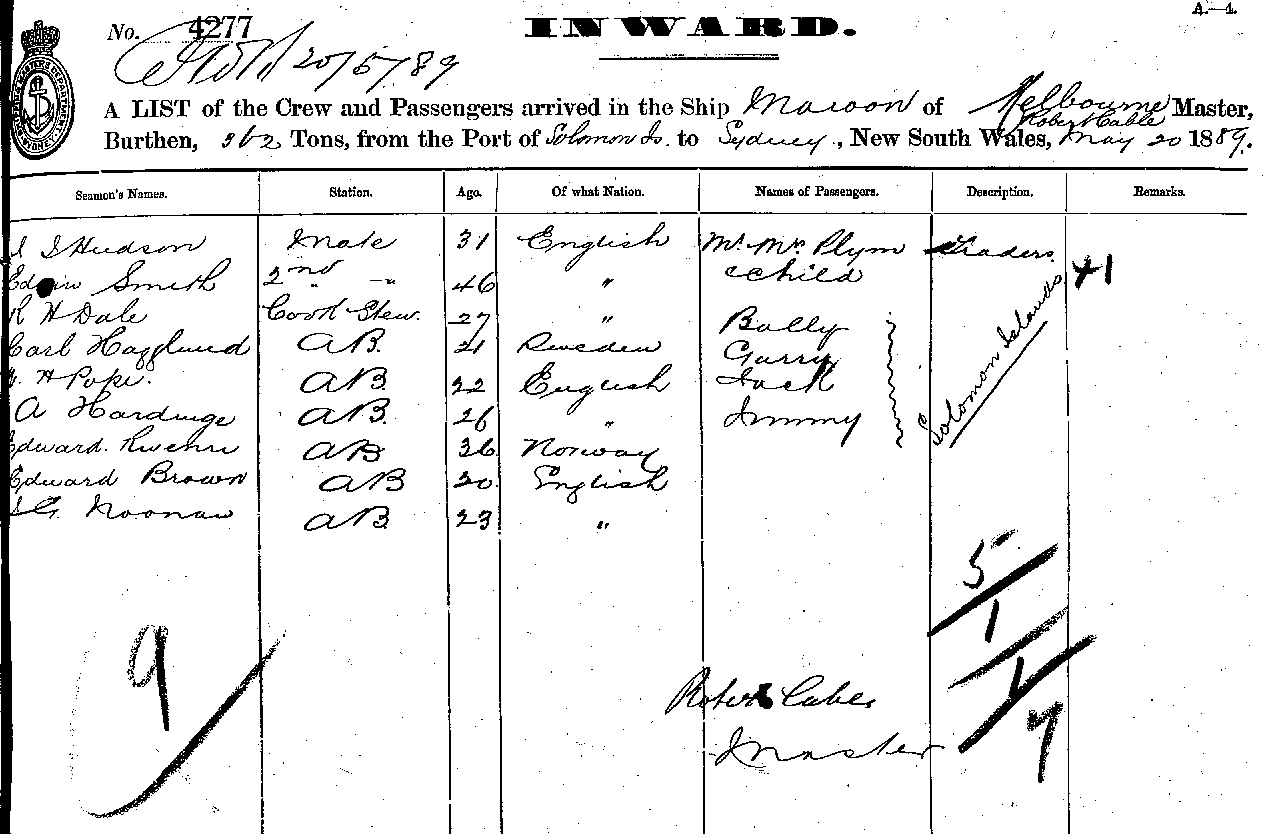 A.—4.
No. 4277
INWARD.
20/5/89
A LIST of the Crew and Passengers arrived in the Ship Maroon of Melbourne Master,
Robert Cable
Burthen, 362 Tons, from the Port of Solomon Is. to Sydney, New South Wales, May 20 1889.
Seamen's Names. Station. Age. Of what Nation. Names of Passengers. Description. Remarks.
Hudson Mate 31 English Mr. Mrs Plym Traders
Smith 2nd " 46 " & Child +1
H Dale Cook Stew. 27 " Bully
Carl Hagglund AB. 21 Sweden Garry
H Pope. AB 22 English Jack
A Hardinge AB. 26 " Jimmy
Solomon Islands
Edward AB 36 Norway
Edward Brown AB 20 English
G. Noonan AB 23 "
5
1
1
9
7
Robert Cable
Master